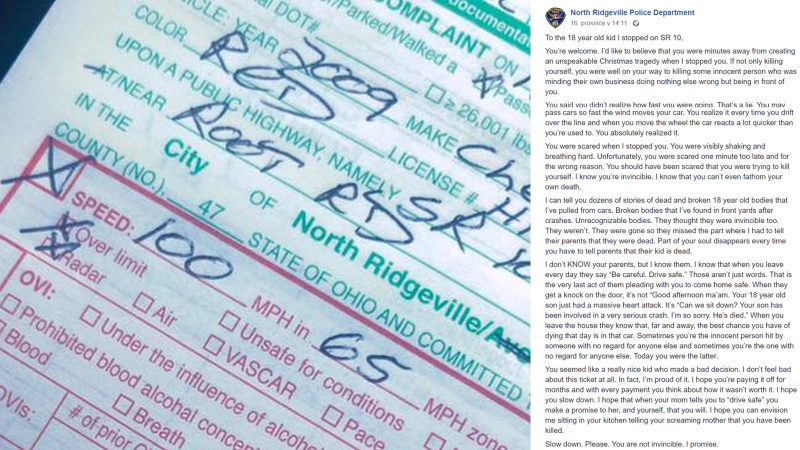 COMPLAINT ON
documenta
VEHICLE: YEAR 2009
DOT#
Parked/Walked a
Pass
COLOR RED
≥ 26,001 lbs
MAKE Che
UPON A PUBLIC HIGHWAY, NAMELY SR 10
LICENSE # H
AT/NEAR ROOT RD
IN THE City OF North Ridgeville/Avo
COUNTY (NO.) 47 STATE OF OHIO AND COMMITTED T
SPEED: 100 MPH in 65 MPH zone
Over limit
Unsafe for conditions
Radar
Air
VASCAR
Pace
OVI:
Under the influence of alcoho
Prohibited blood alcohol concen
Blood
Breath
OVIs:
# of prior O
North Ridgeville Police Department
16. prosince v 14:11
To the 18 year old kid I stopped on SR 10,
You're welcome. I'd like to believe that you were minutes away from creating
an unspeakable Christmas tragedy when I stopped you. If not only killing
yourself, you were well on your way to killing some innocent person who was
minding their own business doing nothing else wrong but being in front of
you.
You said you didn't realize how fast you were going. That's a lie. You may
pass cars so fast the wind moves your car. You realize it every time you drift
over the line and when you move the wheel the car reacts a lot quicker than
you're used to. You absolutely realized it.
You were scared when I stopped you. You were visibly shaking and
breathing hard. Unfortunately, you were scared one minute too late and for
the wrong reason. You should have been scared that you were trying to kill
yourself. I know you're invincible. I know that you can't even fathom your
own death.
I can tell you dozens of stories of dead and broken 18 year old bodies that
I've pulled from cars. Broken bodies that I've found in front yards after
crashes. Unrecognizable bodies. They thought they were invincible too.
They weren't. They were gone so they missed the part where I had to tell
their parents that they were dead. Part of your soul disappears every time
you have to tell parents that their kid is dead.
I don't KNOW your parents, but I know them. I know that when you leave
every day they say "Be careful. Drive safe." Those aren't just words. That is
the very last act of them pleading with you to come home safe. When they
get a knock on the door, it's not "Good afternoon ma'am. Your 18 year old
son just had a massive heart attack. It's "Can we sit down? Your son has
been involved in a very serious crash. I'm so sorry. He's died." When you
leave the house they know that, far and away, the best chance you have of
dying that day is in that car. Sometimes you're the innocent person hit by
someone with no regard for anyone else and sometimes you're the one with
no regard for anyone else. Today you were the latter.
You seemed like a really nice kid who made a bad decision. I don't feel bad
about this ticket at all. In fact, I'm proud of it. I hope you're paying it off for
months and with every payment you think about how it wasn't worth it. I hope
you slow down. I hope that when your mom tells you to "drive safe" you
make a promise to her, and yourself, that you will. I hope you can envision
me sitting in your kitchen telling your screaming mother that you have been
killed.
Slow down. Please. You are not invincible. I promise.